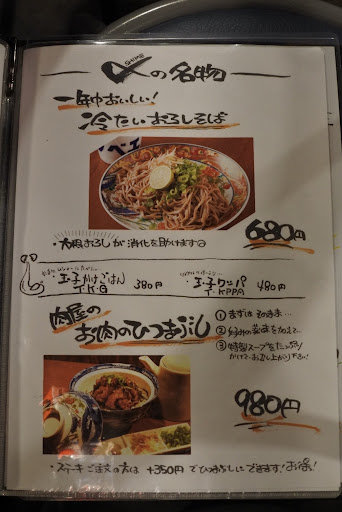 〆の名物
SHIME
一年中おいしい!
冷たいおろしそば
680円
・大根おろしが消化を助けます
玉子かけごはん
T.K.G 380円
・玉子クッパ
T.KPPA 480円
肉屋の
お肉のひつまぶし
① まずはそのまま…
② お好みの薬味を加えて…
③ 特製スープをたっぷり
かけてお召し上がり下さい!
980円
・ステーキご注文の方は +350円でひつまぶしにできます!お得!